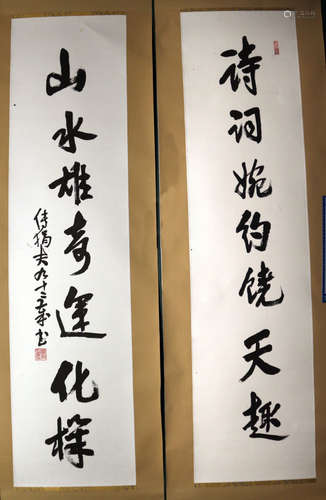 诗词婉约饶天趣
山水雄奇运化机
传狷夫九十三岁书